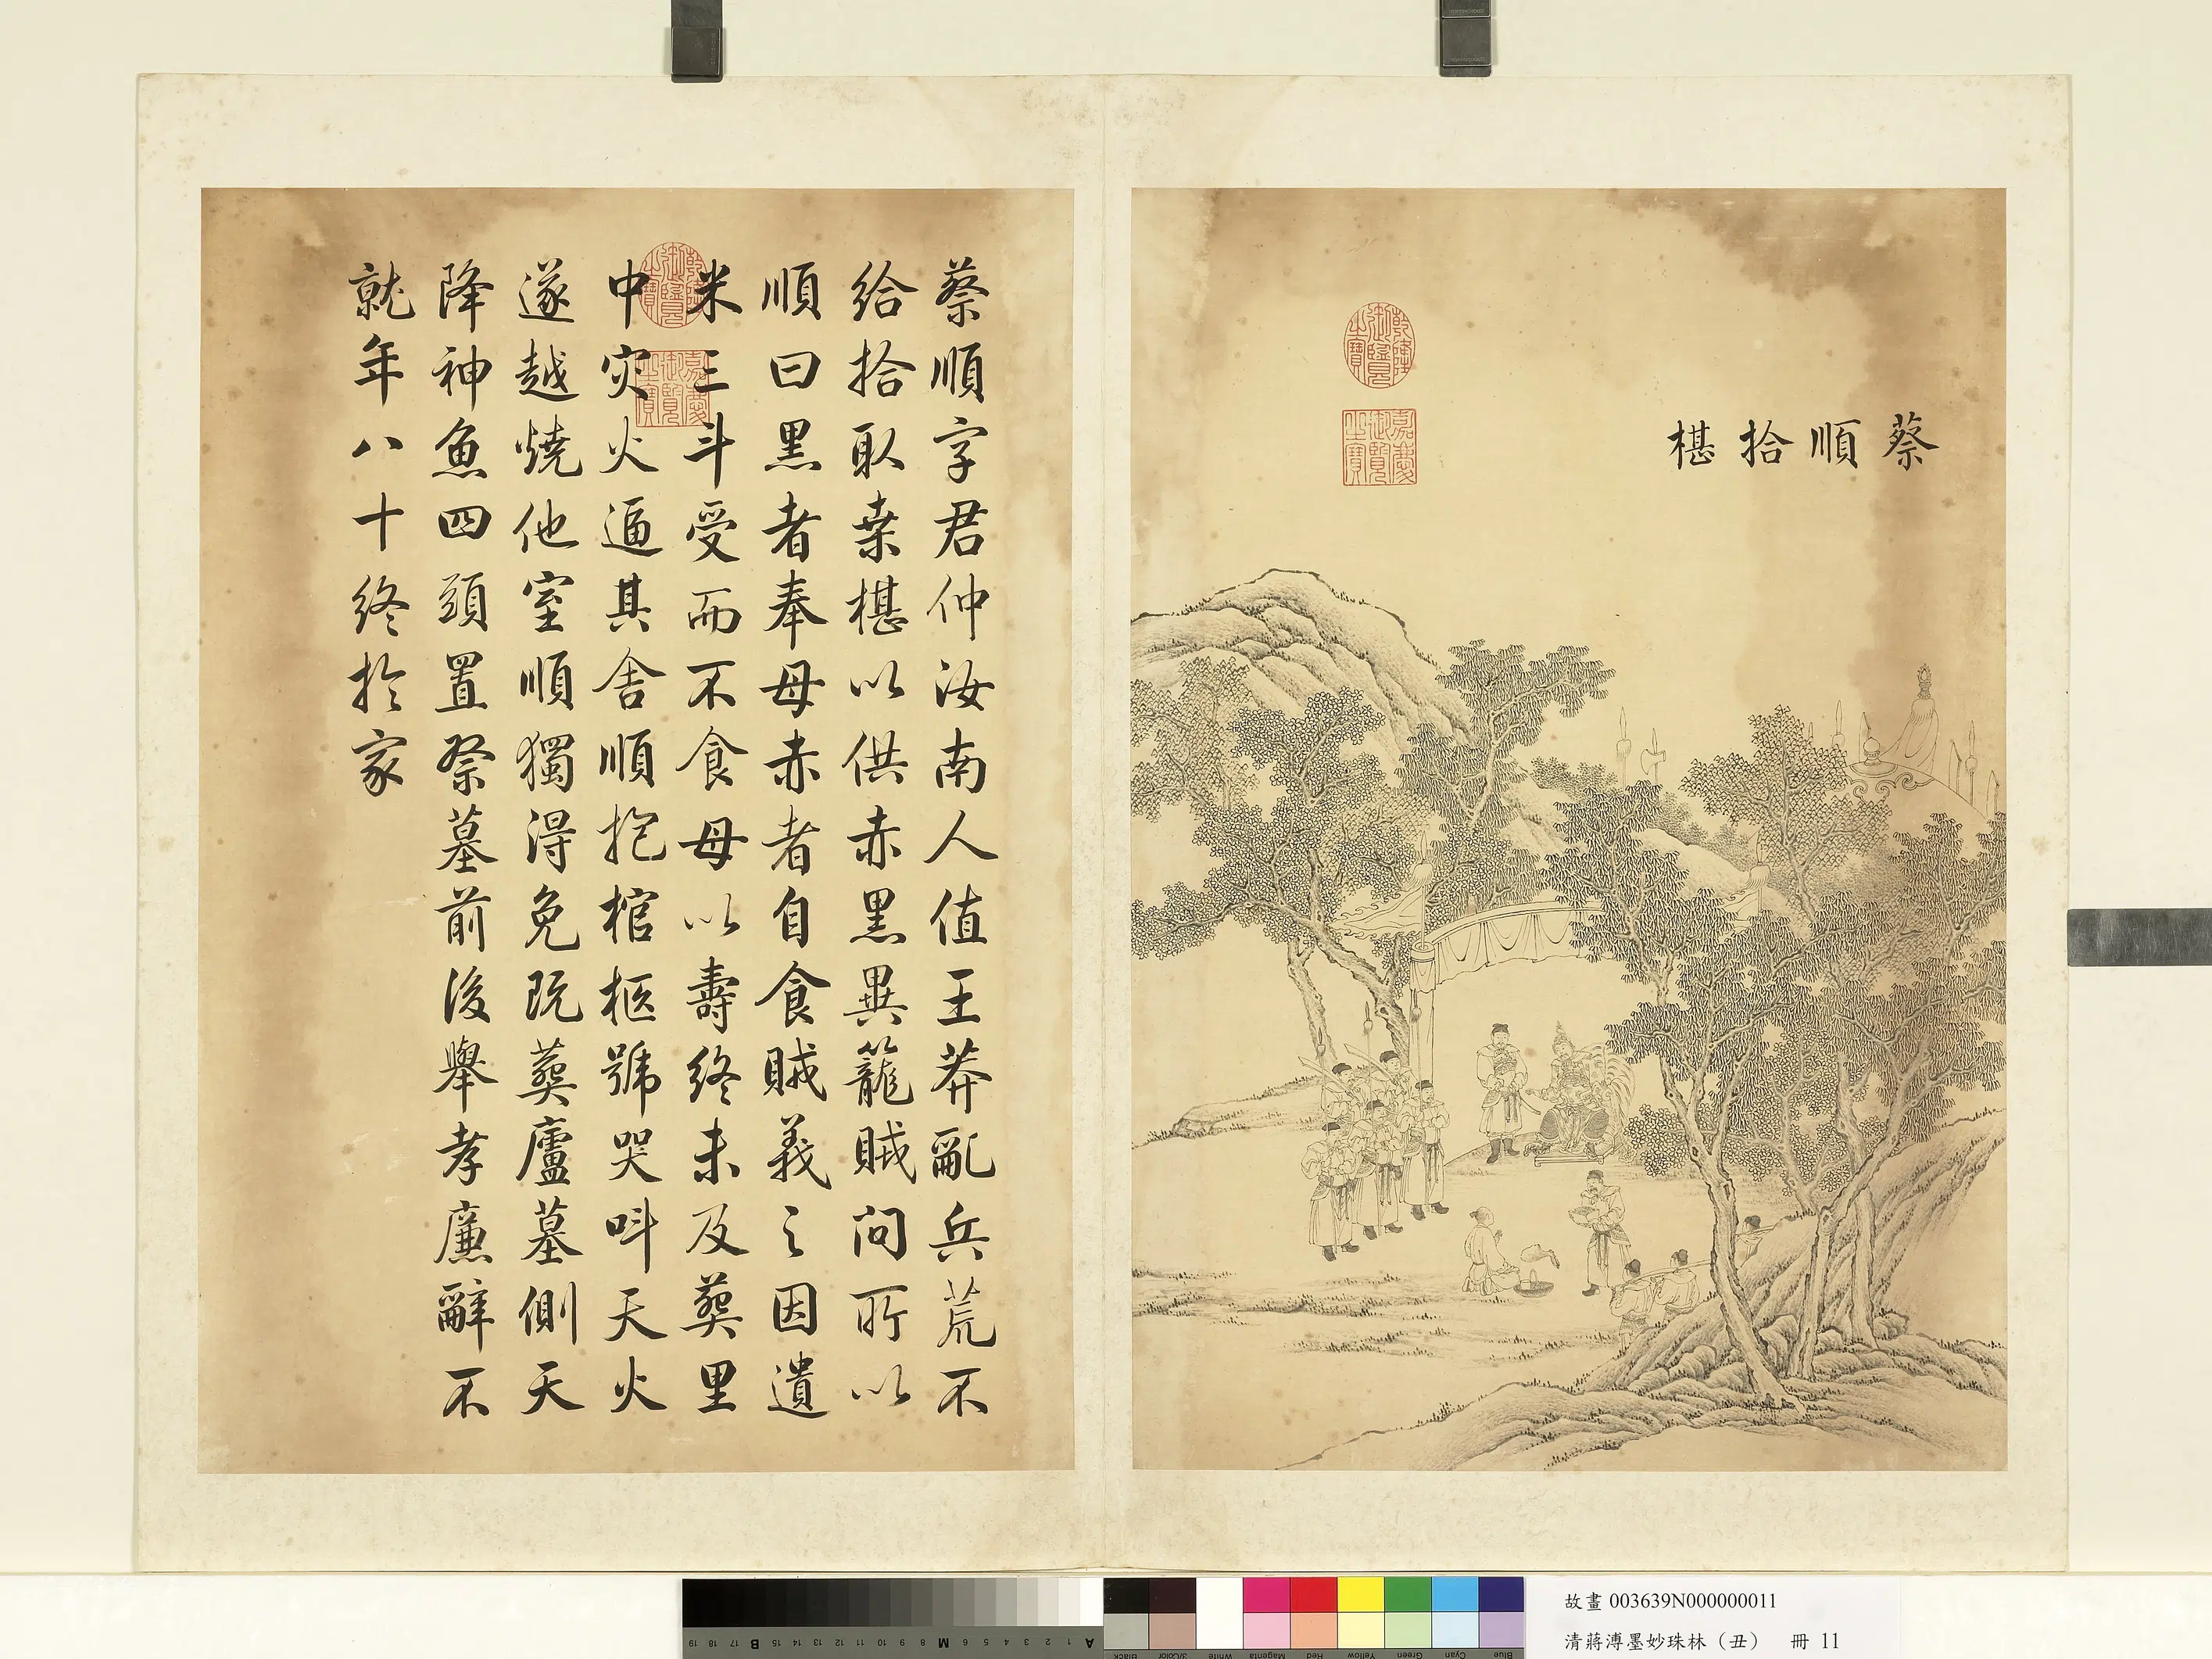 蔡順拾椹
乾隆御覽之寶
嘉慶御覽之寶
蔡順字君仲汝南人值王莽亂兵荒不
給拾取桒椹以供赤黑異籠賊問所以
順曰黑者奉母赤者自食賊義之因遺
米三斗受而不食母以壽終未及葬里
中灾火逼其舍順抱棺柩號哭呌天火
遂越燒他室順獨得免既葬廬墓側天
降神魚四頭置祭墓前後舉孝廉辭不
就年八十終於家
乾隆御覽之寶
嘉慶御覽之寶
故畫 003639N000000011
清蔣溥墨妙珠林（丑） 冊 11
19 18 17 16 15 14 13 12 11 10 9 8 7 6 5 4 3 2 1
B M A
Black 3/Color White Magenta Red Yellow Green Cyan Blue